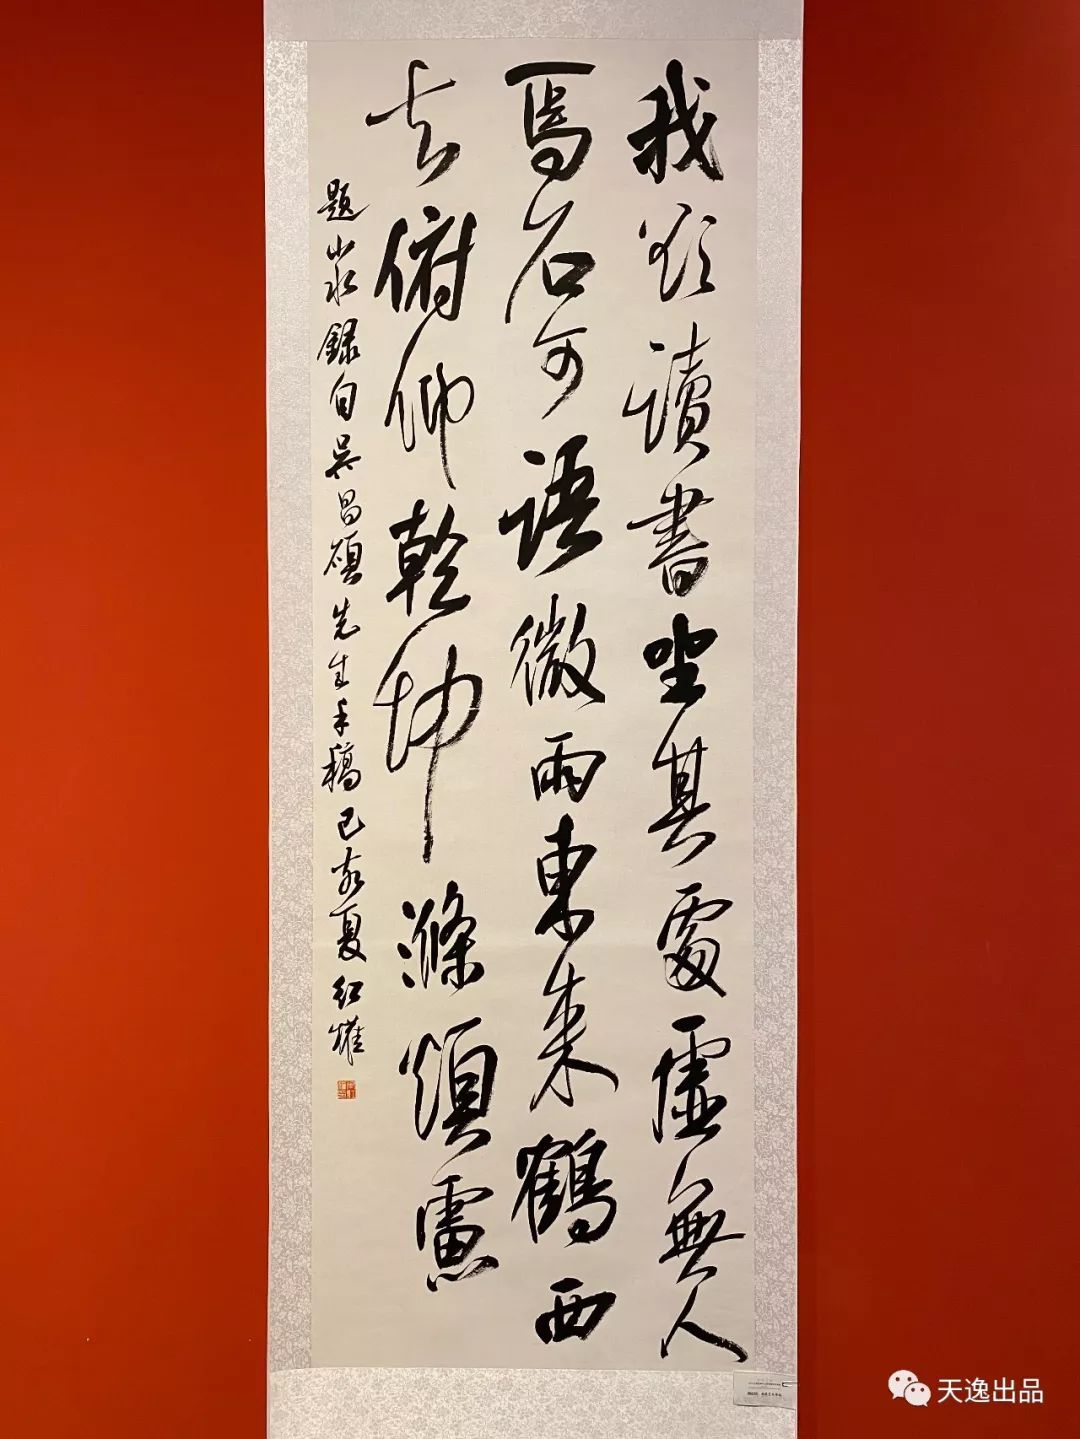 我欲讀書坐其處虛無人
焉石可語微雨東來鶴西
去俯仰乾坤滌煩慮
題山水錄自吳昌碩先生手稿己亥夏紅
天逸出品